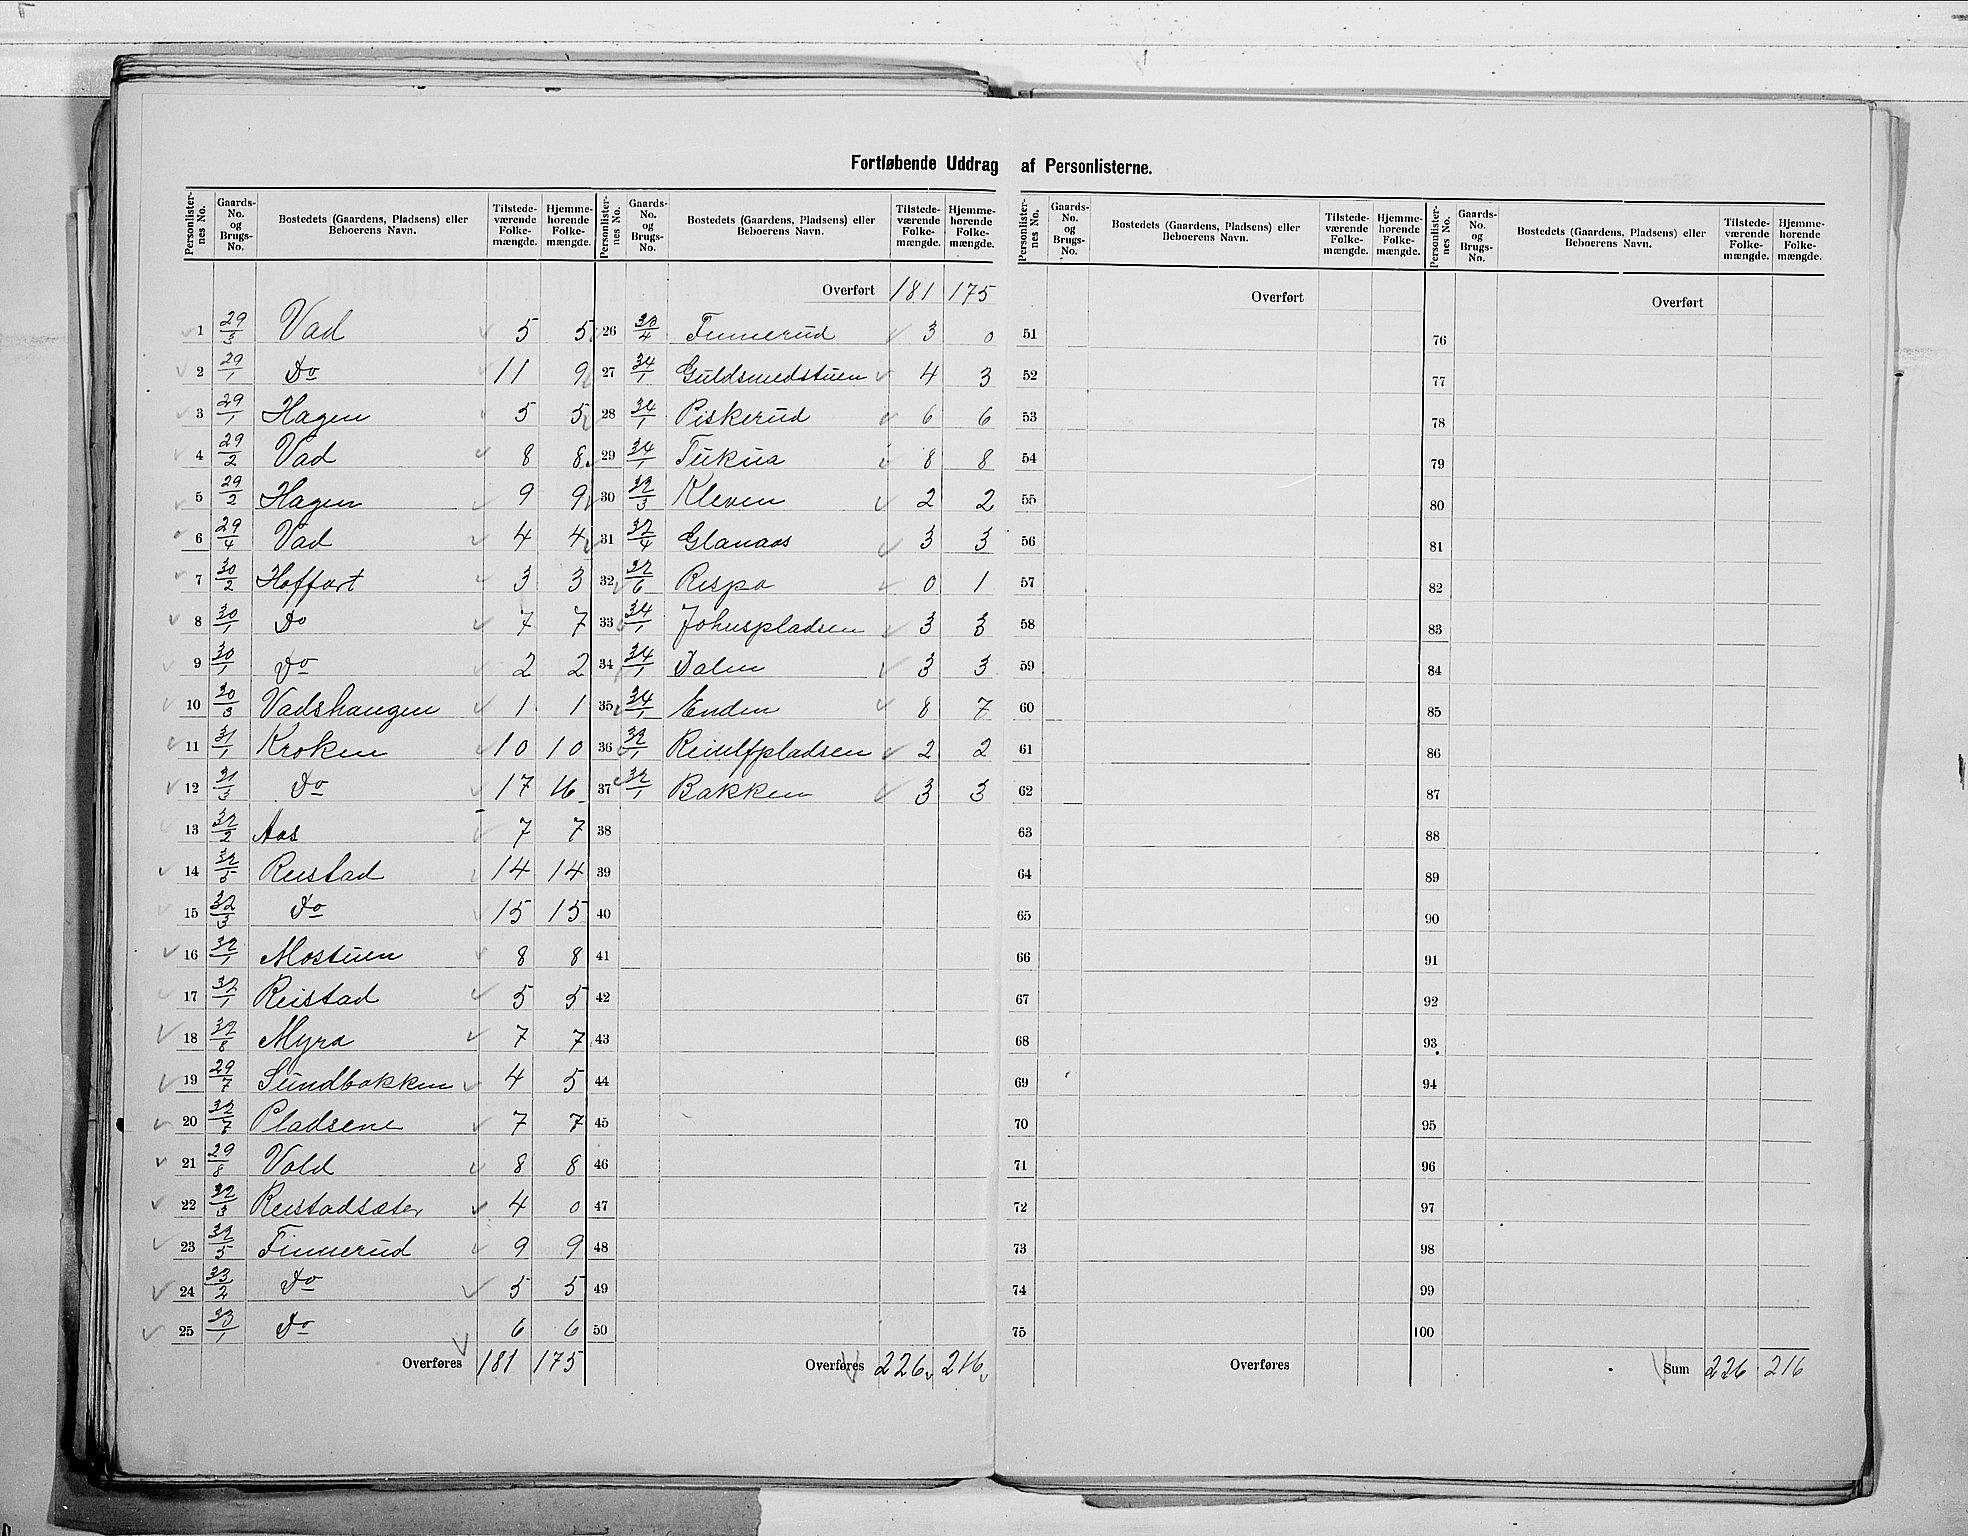 Fortløbende Uddrag af Personlisterne.
Personlisternes No. Gaards-No. og Brugs-No. Bostedets (Gaardens, Pladsens) eller Beboerens Navn. Tilstedeværende Folkemængde. Hjemmehørende Folkemængde.
1 29/3 Vad 5 5
2 29/1 Do 11 9
3 29/1 Hagen 5 5
4 29/2 Vad 8 8
5 29/2 Hagen 9 9
6 29/4 Vad 4 4
7 30/2 Hoffart 3 3
8 30/1 Do 7 7
9 30/1 Do 2 2
10 30/3 Vadshaugen 1 1
11 31/1 Kroken 10 10
12 31/3 Do 17 16
13 32/2 Aas 7 7
14 32/5 Reistad 14 14
15 32/3 Do 15 15
16 32/1 Mostuen 8 8
17 32/1 Reistad 5 5
18 32/8 Myra 7 7
19 29/7 Sundbakken 4 5
20 32/7 Pladsene 7 7
21 29/8 Vold 8 8
22 32/3 Reistadsæter 4 0
23 32/5 Finnerud 9 9
24 33/2 Do 5 5
25 33/1 Do 6 6
Overføres 181 175
Personlisternes No. Gaards-No. og Brugs-No. Bostedets (Gaardens, Pladsens) eller Beboerens Navn. Tilstedeværende Folkemængde. Hjemmehørende Folkemængde.
Overført 181 175
26 33/4 Finnerud 3 0
27 34/1 Guldsmedstuen 4 3
28 34/1 Piskerud 6 6
29 34/1 Tukua 8 8
30 32/3 Kleven 2 2
31 32/4 Glanaas 3 3
32 32/6 Rispa 0 1
33 34/1 Johnspladsen 3 3
34 34/1 Dalen 3 3
35 34/1 Enden 8 7
36 32/1 Reiulfpladsen 2 2
37 32/1 Bakken 3 3
38
39
40
41
42
43
44
45
46
47
48
49
50
Overføres 226 216
Personlisternes No. Gaards-No. og Brugs-No. Bostedets (Gaardens, Pladsens) eller Beboerens Navn. Tilstedeværende Folkemængde. Hjemmehørende Folkemængde.
Overført
51
52
53
54
55
56
57
58
59
60
61
62
63
64
65
66
67
68
69
70
71
72
73
74
75
Overføres
Personlisternes No. Gaards-No. og Brugs-No. Bostedets (Gaardens, Pladsens) eller Beboerens Navn. Tilstedeværende Folkemængde. Hjemmehørende Folkemængde.
Overført
76
77
78
79
80
81
82
83
84
85
86
87
88
89
90
91
92
93
94
95
96
97
98
99
100
Sum 226 216